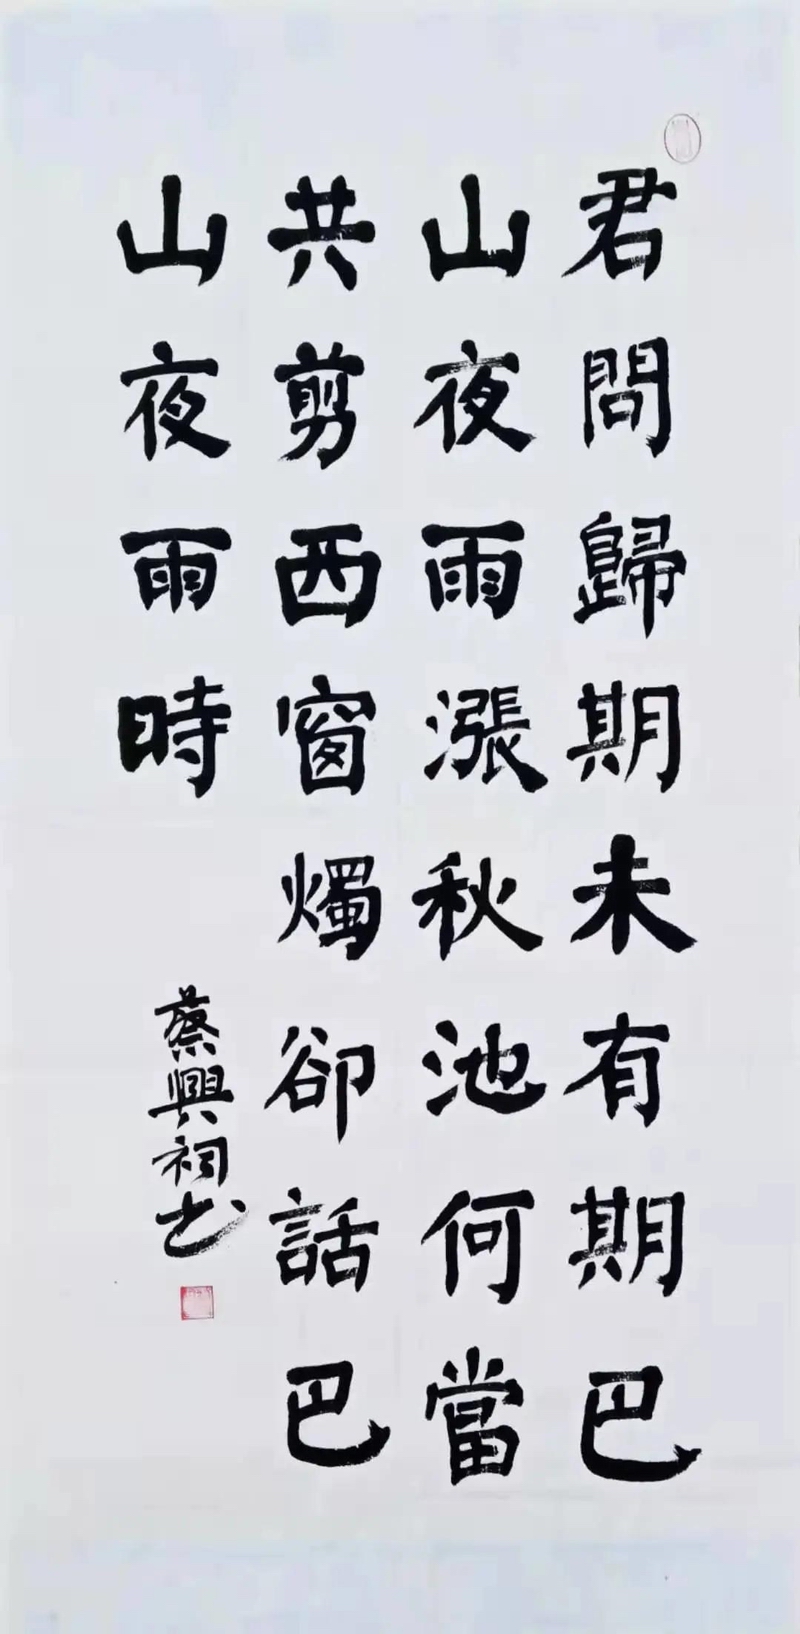 君問歸期未有期巴
山夜雨漲秋池何當
共剪西窗燭卻話巴
山夜雨時
蔡興祠书